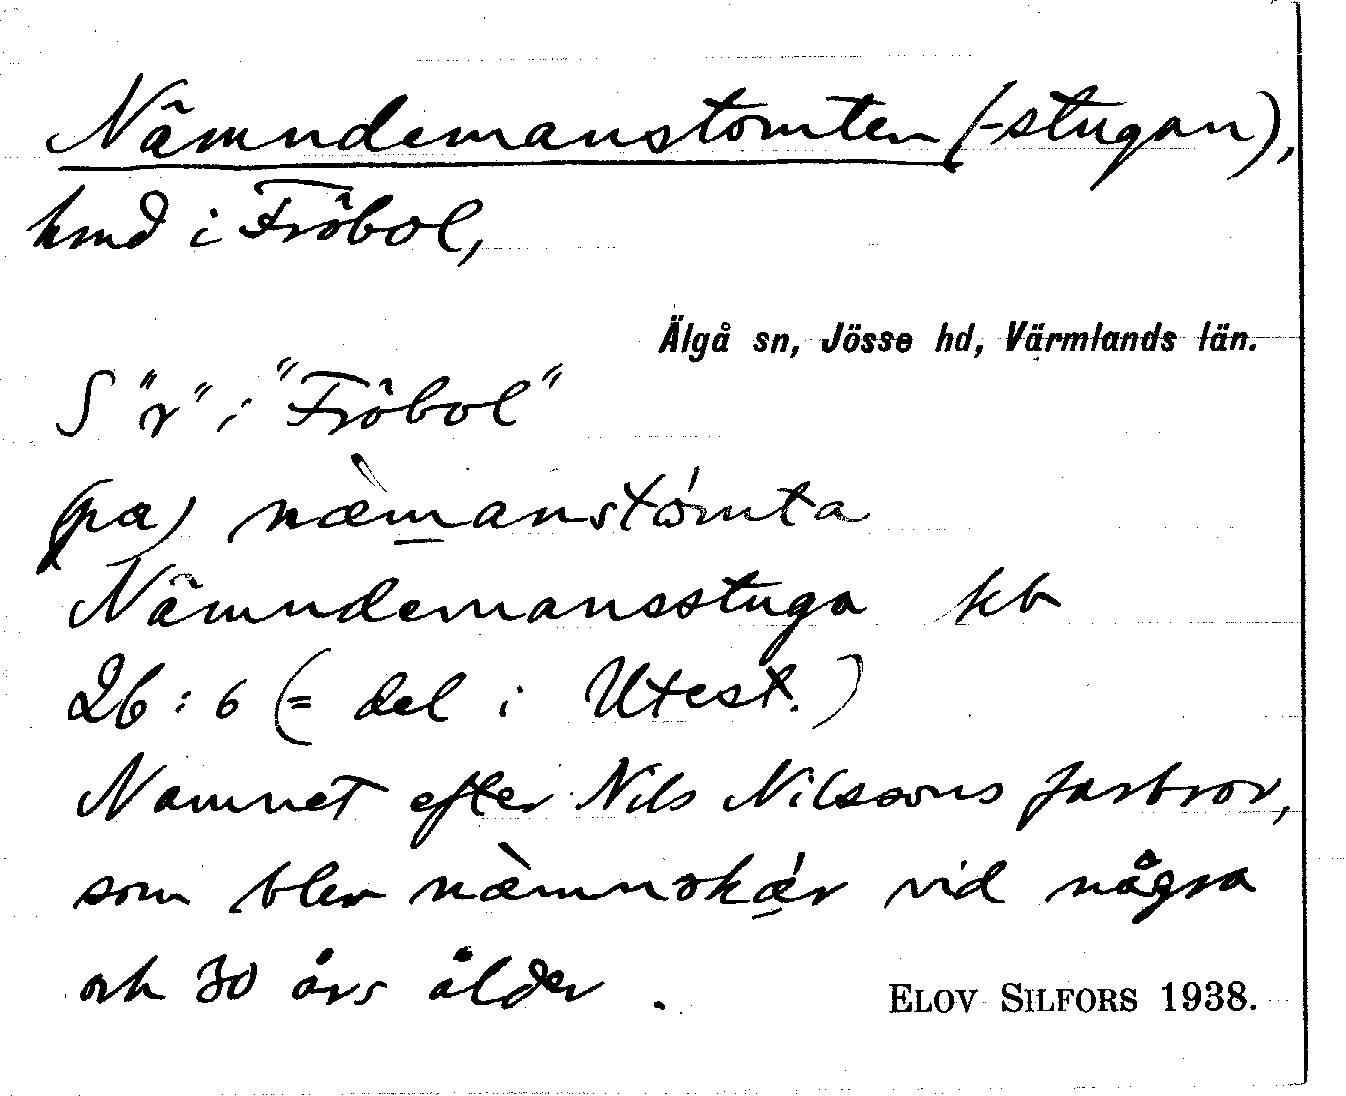 Nämndemanstomten (-stugan),
hmd i Fröbol,
Älgå sn, Jösse hd, Värmlands län.
S "r" i "Fröbol"
(pa) næ̀manstómta
Nämndemansstuga kb
26:6 (= del i Utest.)
Namnet efter Nils Nilssons farbror,
som blev næ̀mnskǽr vid några
och 30 års ålder.
ELOV SILFORS 1938.